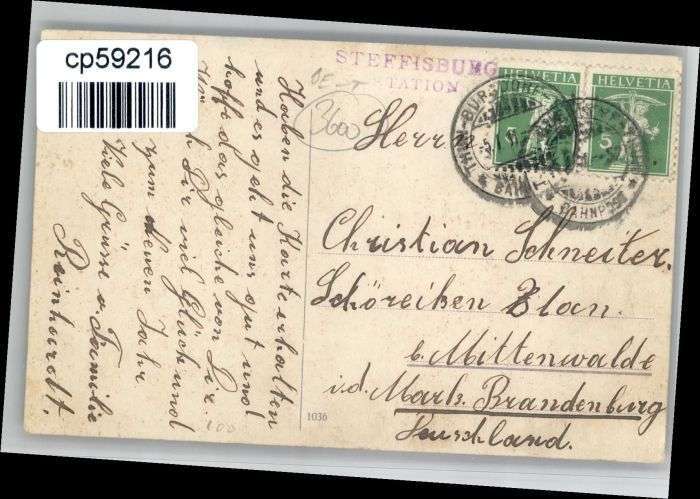 cp59216
STEFFISBURG
STATION
HELVETIA
HELVETIA
5
3600
Haben die Karte erhalten
und es geht uns gut und
hoffe das gleiche von Dir.
Dir viel Glück und
zum Neuen Jahr
viele Grüsse v. Familie
Reinhardt.
100
1036
Herr
Christian Schneiter.
Schöreiken Zlan.
b. Mittenwalde
i.d. Mark. Brandenburg
Deuschland.